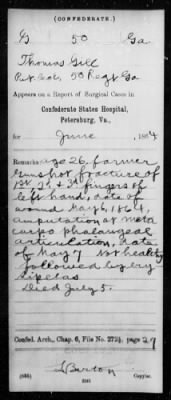 (CONFEDERATE.)
G 50 Ga
Thomas Gill
Pvt. Co. G, 50 Regt Ga
Appears on a Report of Surgical Cases in
Confederate States Hospital,
Petersburg, Va.,
for June, 1864
Remarks: age 26, farmer
Gunshot fracture of
1st, 2d & 3d fingers of
left hand, date of
wound May 6, 1864,
amputation at meta
carpo phalangeal
articulation, date
of May 7 Not healthy
followed by ery
sipelas
Died July 5.
Confed. Arch., Chap. 6, File No. 272½, page 27
Burton
(635) Copyist.